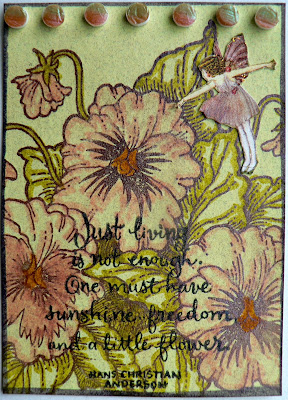 Just living
is not enough.
One must have
sunshine, freedom,
and a little flower.
HANS CHRISTIAN
ANDERSON